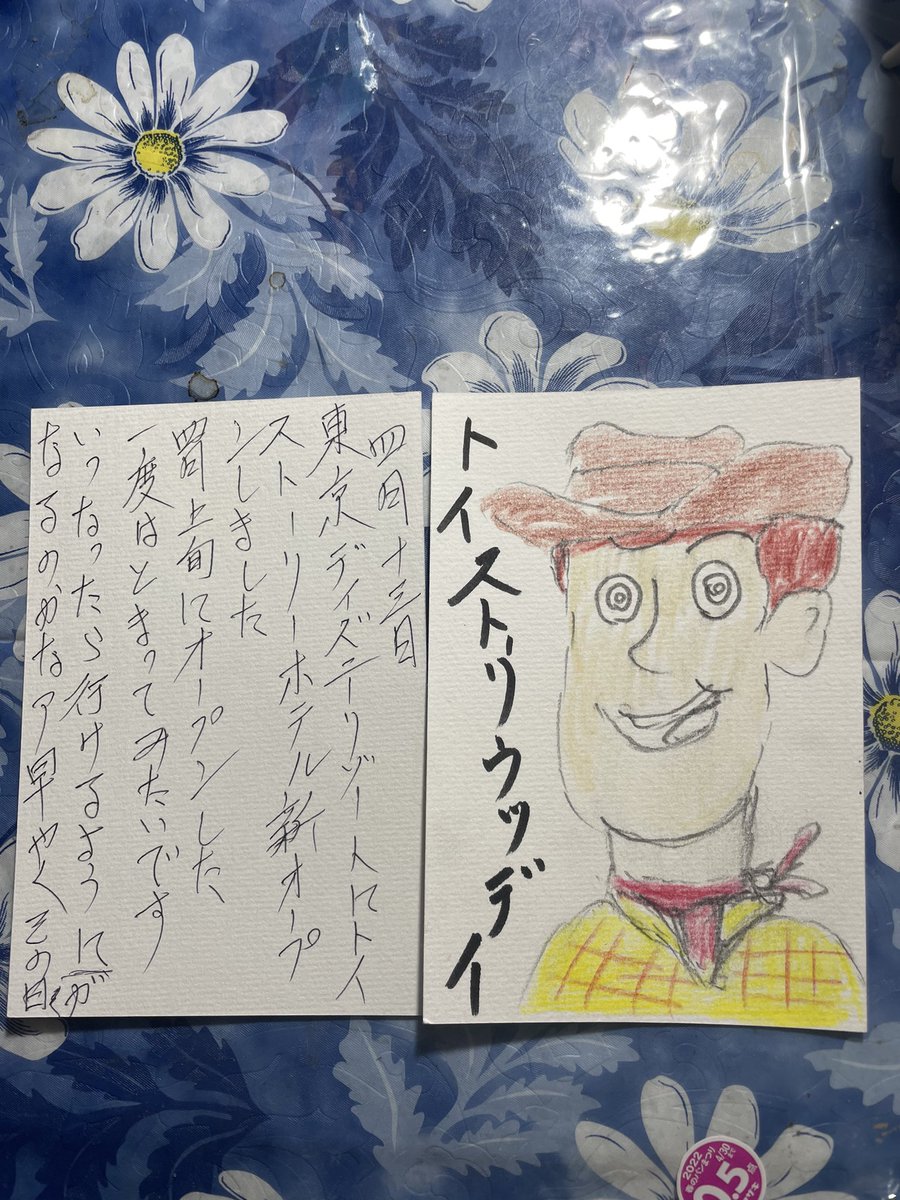 四月十三日
東京ディズニーリゾートにトイ
ストーリーホテル新オープ
ンしました
四月上旬にオープンした、
一度はとまってみたいです
いつなったら行けるように
なるのかなア早やくその日が
く
トイストーリーウッディ
2022
春のパンまつり
4/30
0.5点